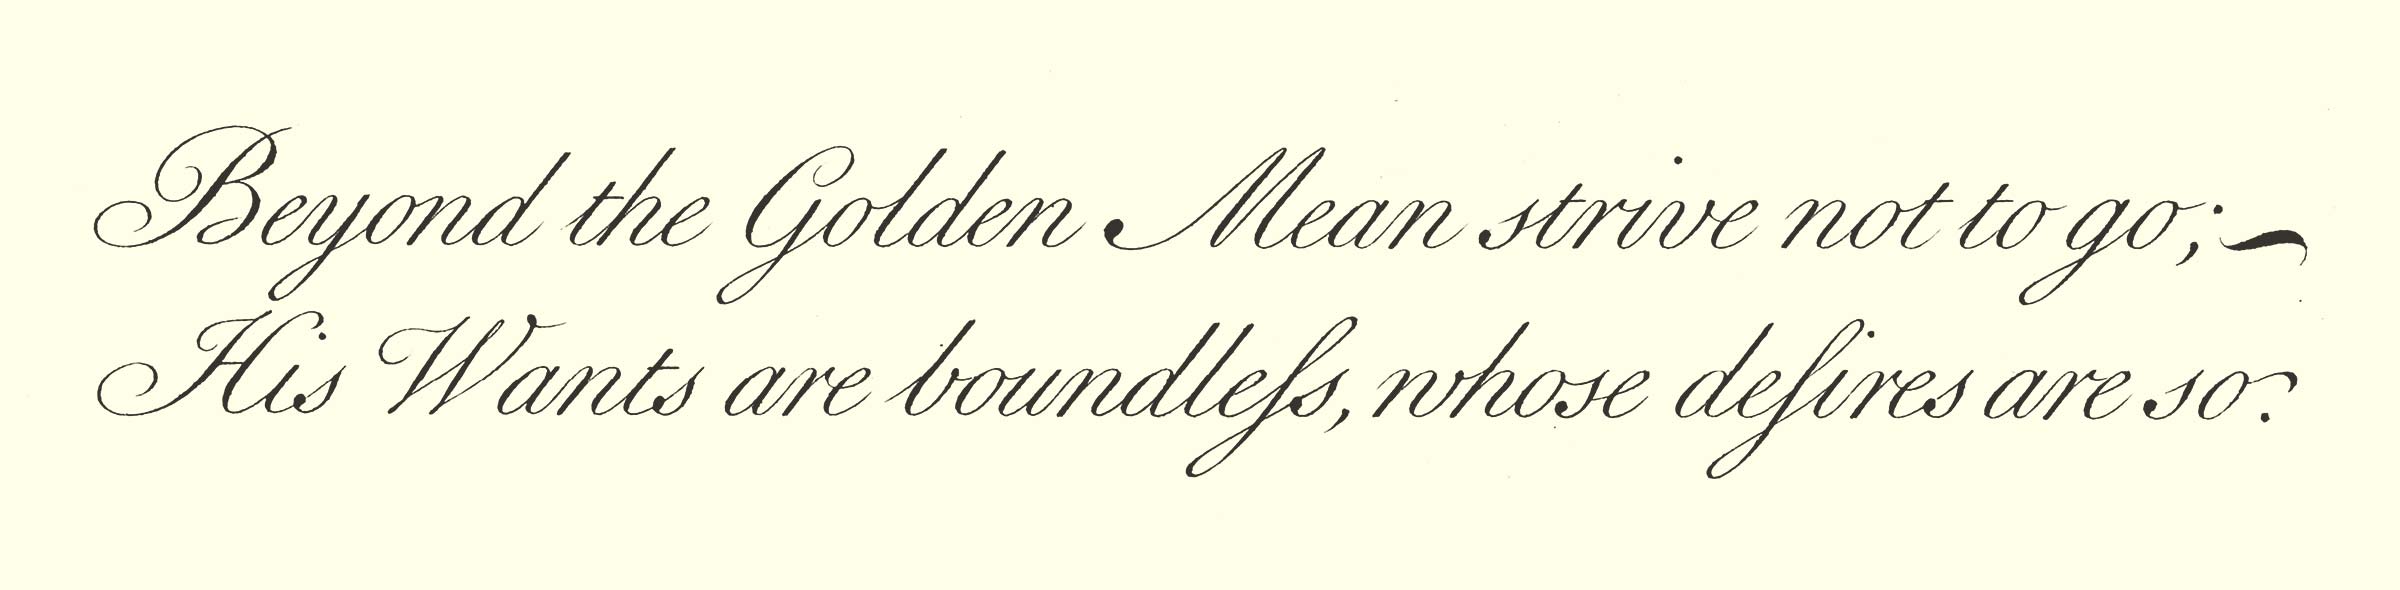 Beyond the Golden Mean strive not to go;~
His Wants are boundleſs, whose deſires are so.